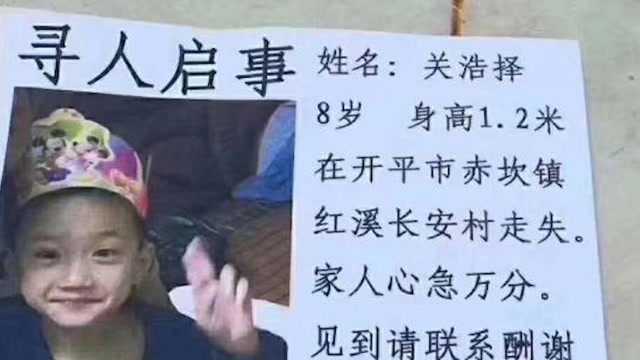 寻人启事
姓名：关浩择
8岁 身高1.2米
在开平市赤坎镇
红溪长安村走失。
家人心急万分。
见到请联系酬谢